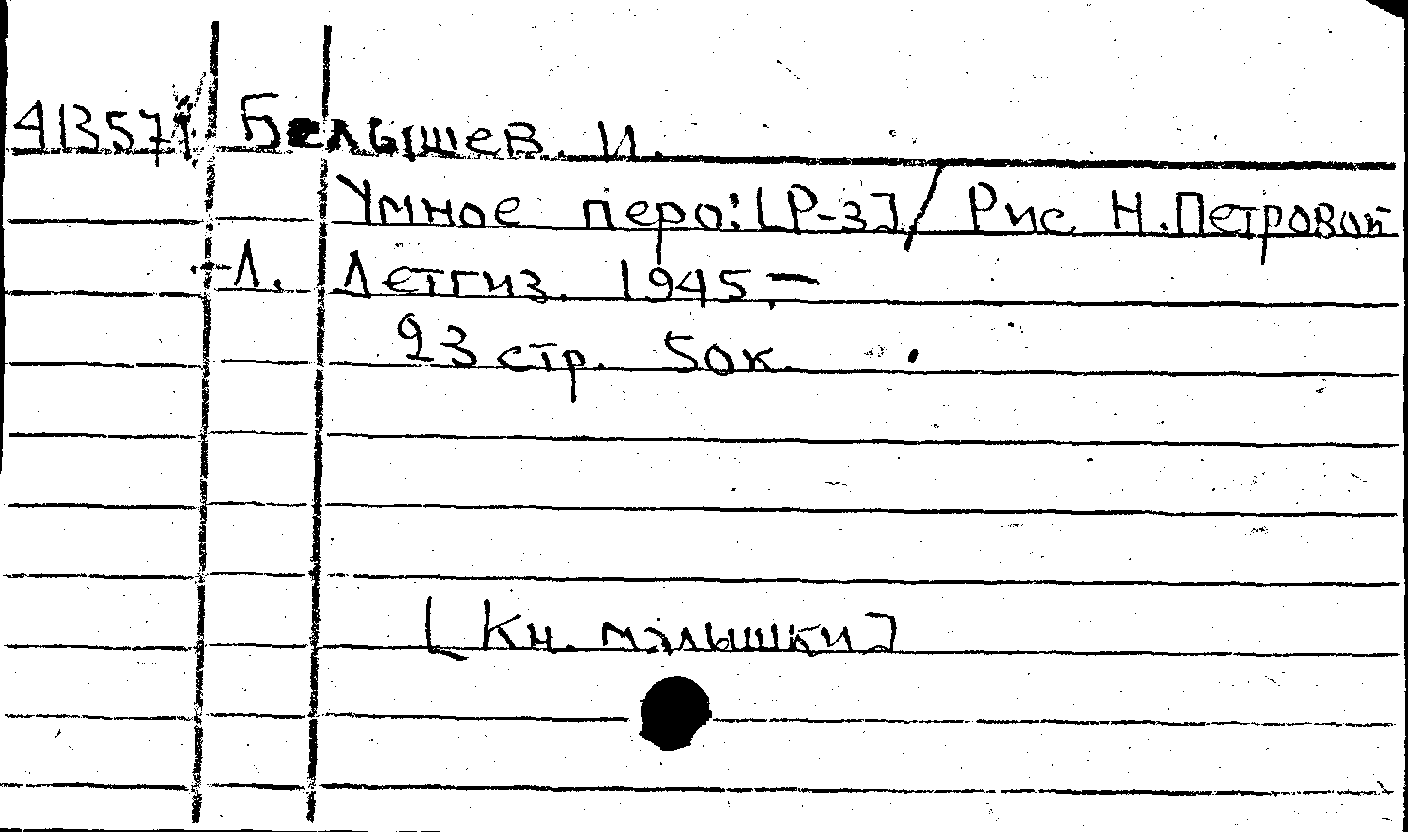 41357 Белышев. И.
Умное перо: [Р-з] / Рис Н. Петровой
Л. Детгиз. 1945. –
23 стр. 50к.
[Кн. малышки]